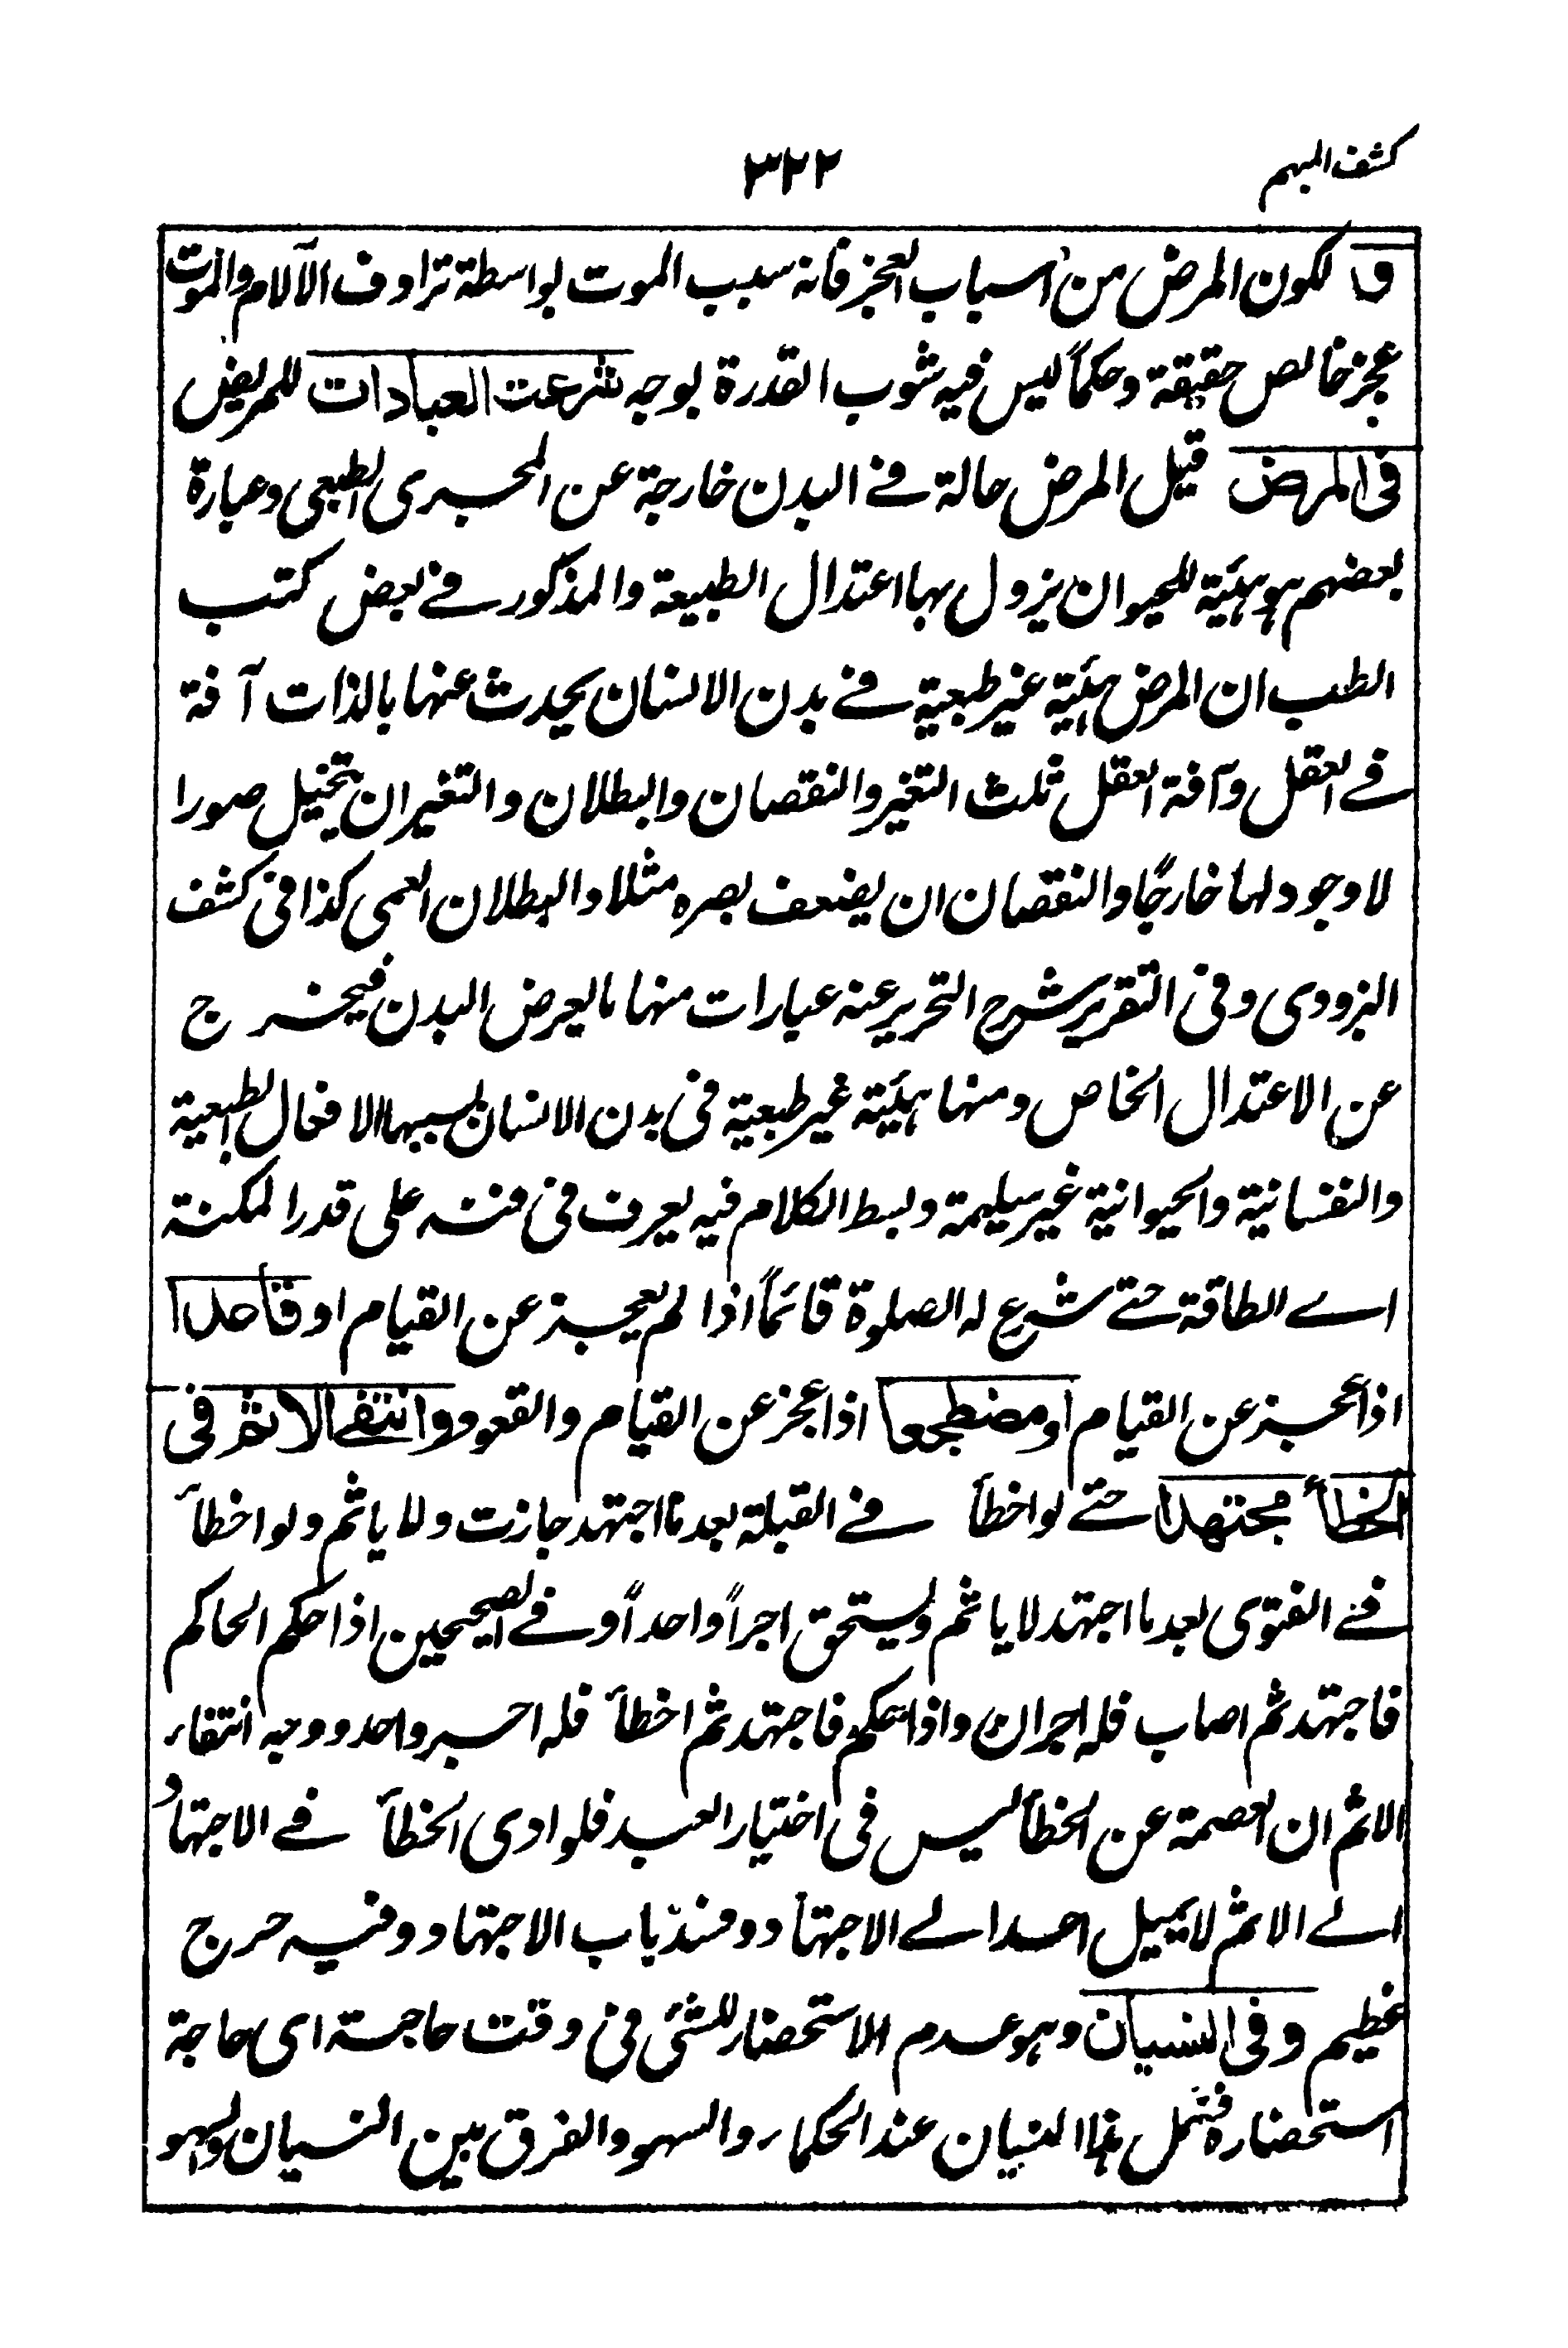 كشف المبهم
٣٢٢
و لكون المرض من اسباب العجز فانه سبب الموت بواسطة تراوف الآلام والموت
عجز خالص حقيقة وحكماً ليس فيه شوب القدرة بوجه شرعت العبادات للمريض
فى المرض قيل المرض حالة فے البدن خارجة عن المجرى الطبعى وعبارة
بعضهم هو هيئة للحيوان يزول بها اعتدال الطبيعة والمذكور فے بعض كتب
الطب ان المرض هيئة غير طبعية فے بدن الانسان يحدث عنها بالذات آفة
فے العقل وآفة العقل ثلث التغير والنقصان والبطلان والتغير ان يتخيل صورا
لا وجود لها خارجًا والنقصان ان يضعف بصره مثلا والبطلان العمى كذا فى كشف
البزودى وفى التقرير شرح التحرير عنه عبارات منها ما يعرض البدن فيخرج
عن الاعتدال الخاص ومنها هيئة غير طبعية فى بدن الانسان بسببها الافعال الطبعية
والنفسانية والحيوانية غير سليمة وبسط الكلام فيه يعرف فى فنه على قدر المكنة
اے الطاقة حتے شرع له الصلوة قائماً اذا لم يعجز عن القيام او قاعدا
اذا عجز عن القيام او مضطجعا اذا عجز عن القيام والقعود وانتفے الاثم فى
الخطأ مجتهدا حتے لو اخطأ فے القبلة بعد ما اجتهد جازت ولا ياثم ولو اخطأ
فے الفتوى بعد ما اجتهد لا ياثم ويستحق اجراً واحداً وفے الصحيحين اذا حكم الحاكم
فاجتهد ثم اصاب فله اجران واذا حكم فاجتهد ثم اخطأ فله اجر واحد ووجه انتفاء
الاثم ان العصمة عن الخطأ ليس فى اختيار العبد فلو ادى الخطأ فے الاجتهاد
الے الاثم لا يميل احد الے الاجتهاد ومنسد باب الاجتهاد وفيه حرج
عظيم وفى النسيان وهو عدم الاستحضار للشئ فى وقت حاجته اى حاجة
استحضاره فشمل هذا النسيان عند الحكماء والسهو والفرق بين النسيان والسهو